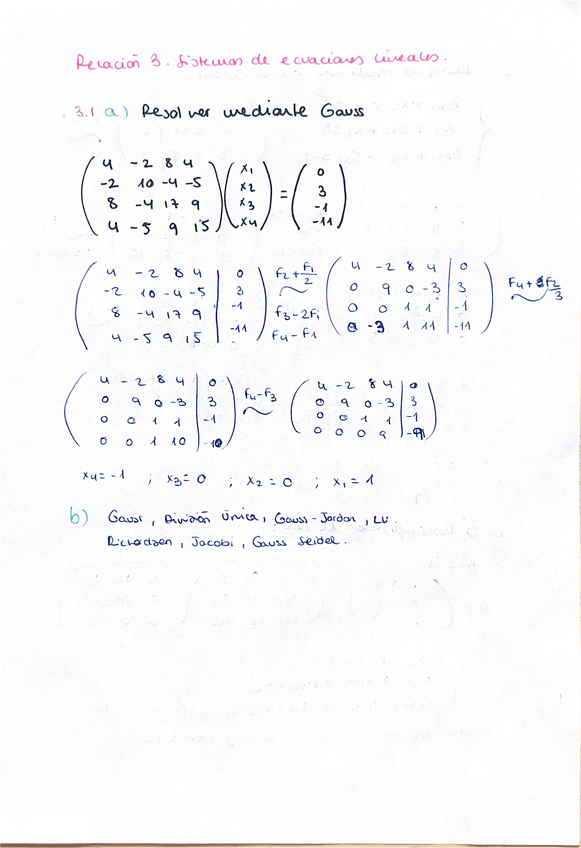 Relación 3. Sistemas de ecuaciones lineales.
3.1 a) Resolver mediante Gauss
4 -2 8 4
-2 10 -4 -5
8 -4 17 9
4 -5 9 15
x1
x2
x3
x4
=
0
3
-1
-11
4 -2 8 4 | 0
-2 10 -4 -5 | 3
8 -4 17 9 | -1
4 -5 9 15 | -11
F2 + F1/2
F3 - 2F1
F4 - F1
4 -2 8 4 | 0
0 9 0 -3 | 3
0 0 1 1 | -1
0 -3 1 11 | -11
F4 + F2/3
4 -2 8 4 | 0
0 9 0 -3 | 3
0 0 1 1 | -1
0 0 1 10 | -10
F4 - F3
4 -2 8 4 | 0
0 9 0 -3 | 3
0 0 1 1 | -1
0 0 0 9 | -9
x4 = -1 ; x3 = 0 ; x2 = 0 ; x1 = 1
b) Gauss, División única, Gauss-Jordan, LU
Richardson, Jacobi, Gauss Seidel.